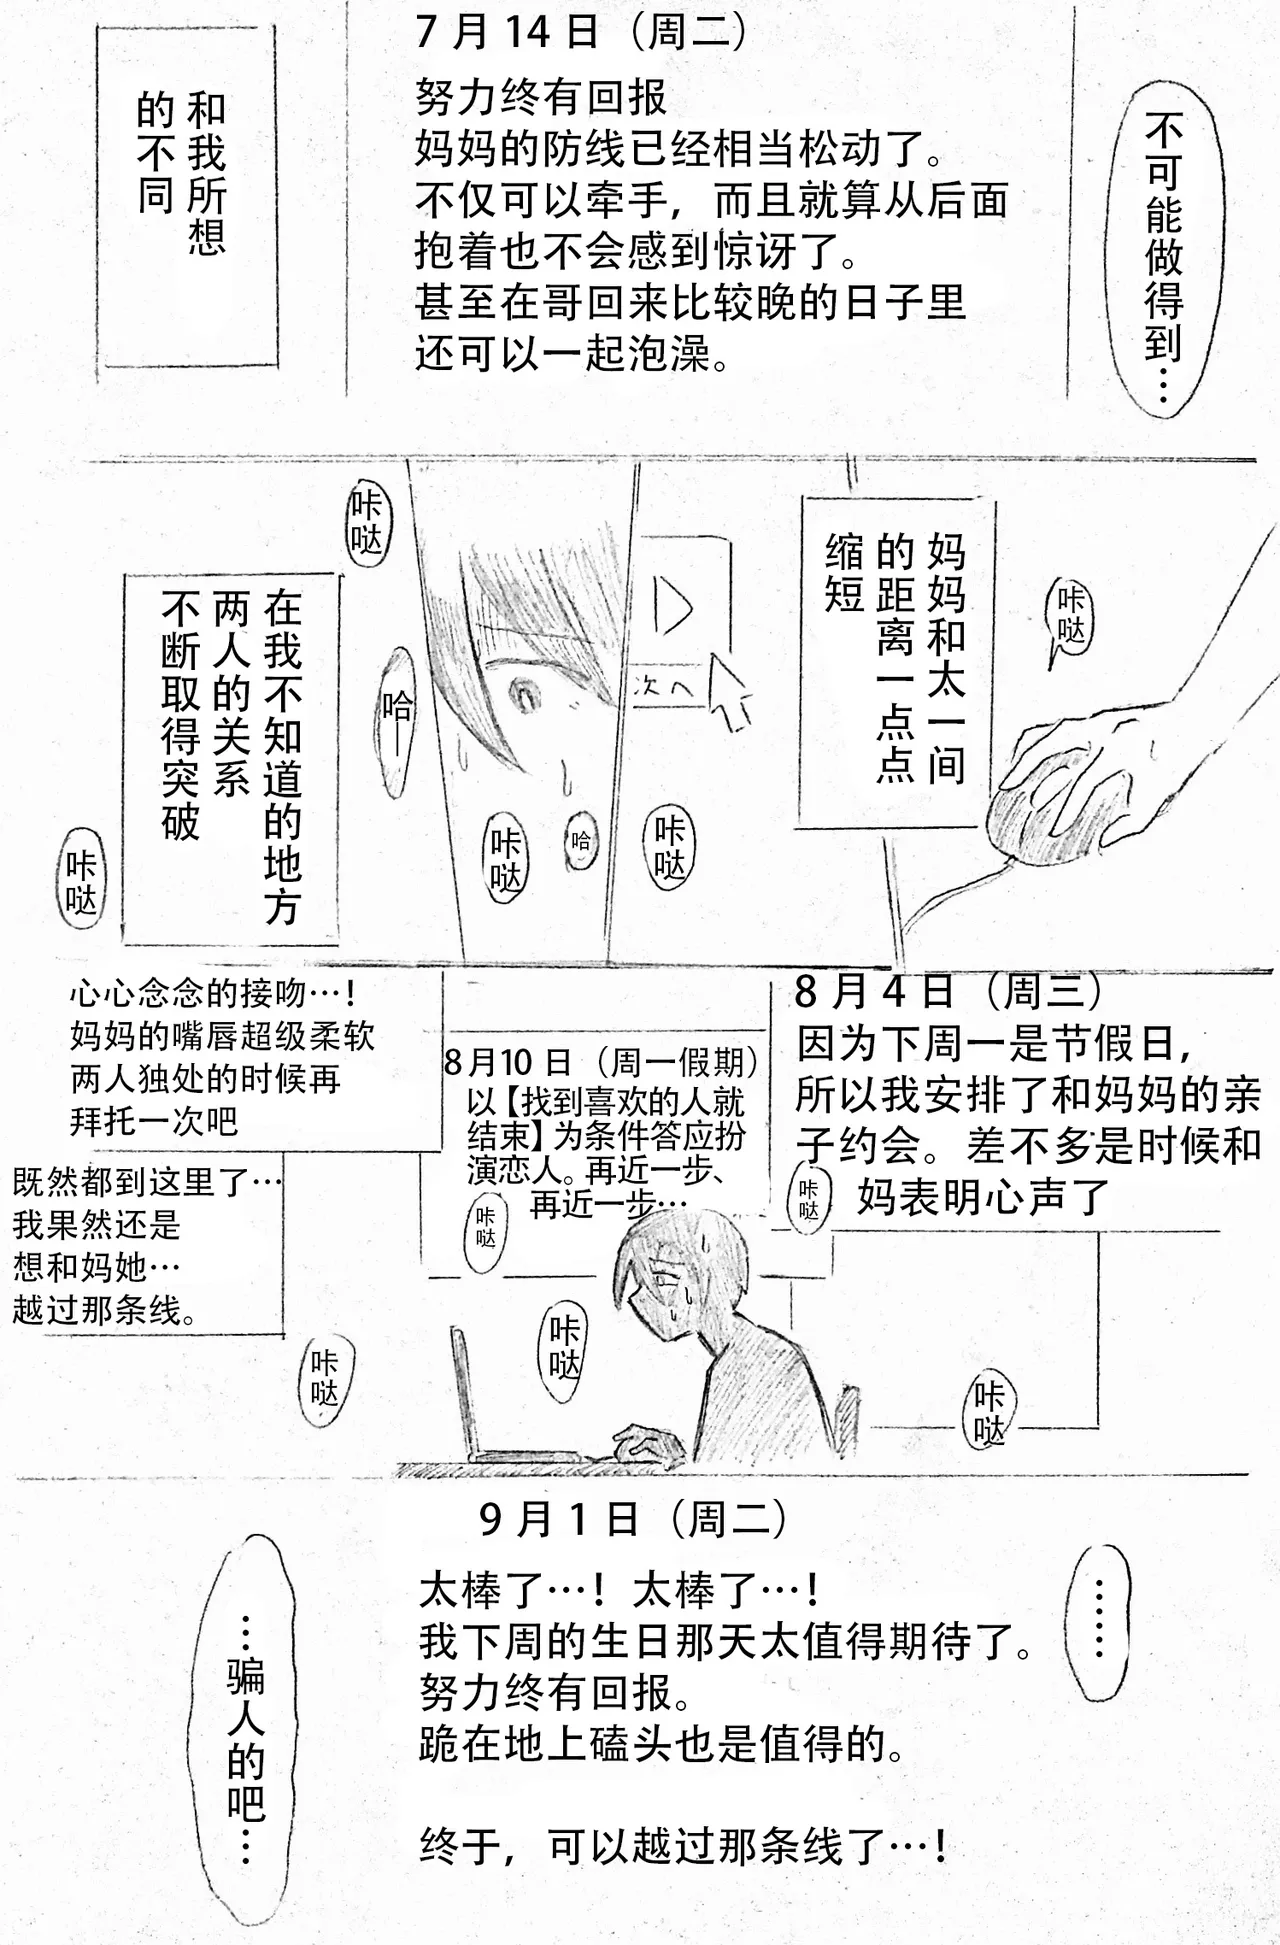 7月14日（周二）
努力终有回报
妈妈的防线已经相当松动了。
不仅可以牵手，而且就算从后面
抱着也不会感到惊讶了。
甚至在哥回来比较晚的日子里
还可以一起泡澡。
不可能做得到…
和我所想
的不同
妈妈和太一间
的距离一点点
缩短
咔哒
次へ
咔哒
哈
咔哒
咔哒
哈—
在我不知道的地方
两人的关系
不断取得突破
咔哒
8月4日（周三）
因为下周一是节假日，
所以我安排了和妈妈的亲
子约会。差不多是时候和
妈表明心声了
咔哒
8月10日（周一假期）
以【找到喜欢的人就
结束】为条件答应扮
演恋人。再近一步、
再近一步…
咔哒
心心念念的接吻…！
妈妈的嘴唇超级柔软
两人独处的时候再
拜托一次吧
既然都到这里了…
我果然还是
想和妈她…
越过那条线。
咔哒
咔哒
咔哒
9月1日（周二）
太棒了…！太棒了…！
我下周的生日那天太值得期待了。
努力终有回报。
跪在地上磕头也是值得的。
终于，可以越过那条线了…！
……
…骗人的吧…